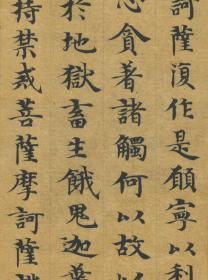 訶薩復作是願寧以利
貪著諸觸何以故以
於地獄畜生餓鬼迦葉
持禁戒菩薩摩訶薩